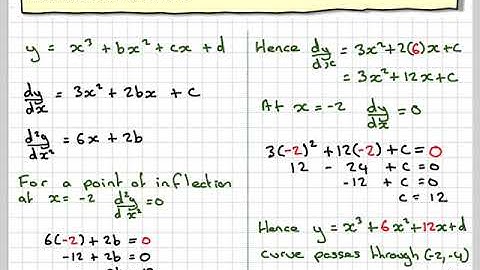 y = x³ + bx² + cx + d
dy/dx = 3x² + 2bx + c
d²y/dx² = 6x + 2b
For a point of inflection
at x = -2 d²y/dx² = 0
6(-2) + 2b = 0
-12 + 2b = 0
Hence dy/dx = 3x² + 2(6)x + c
= 3x² + 12x + c
At x = -2 dy/dx = 0
3(-2)² + 12(-2) + c = 0
12 - 24 + c = 0
-12 + c = 0
c = 12
Hence y = x³ + 6x² + 12x + d
curve passes through (-2, -4)